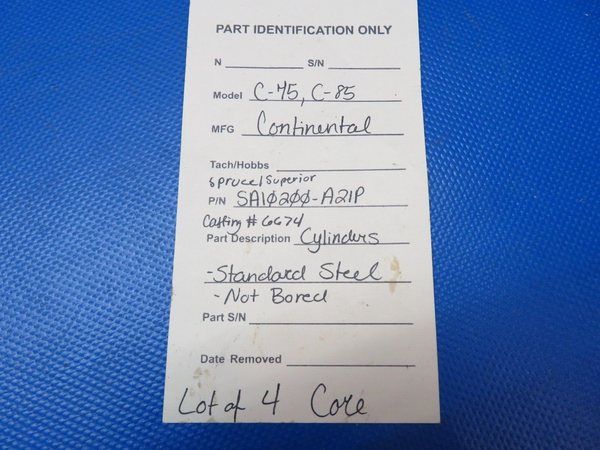 PART IDENTIFICATION ONLY
N S/N
Model C-75, C-85
MFG Continental
Tach/Hobbs
Spruce/Superior
P/N SA10200-A21P
Casting # 6674
Part Description Cylinders
-Standard Steel
-Not Bored
Part S/N
Date Removed
Lot of 4 Core